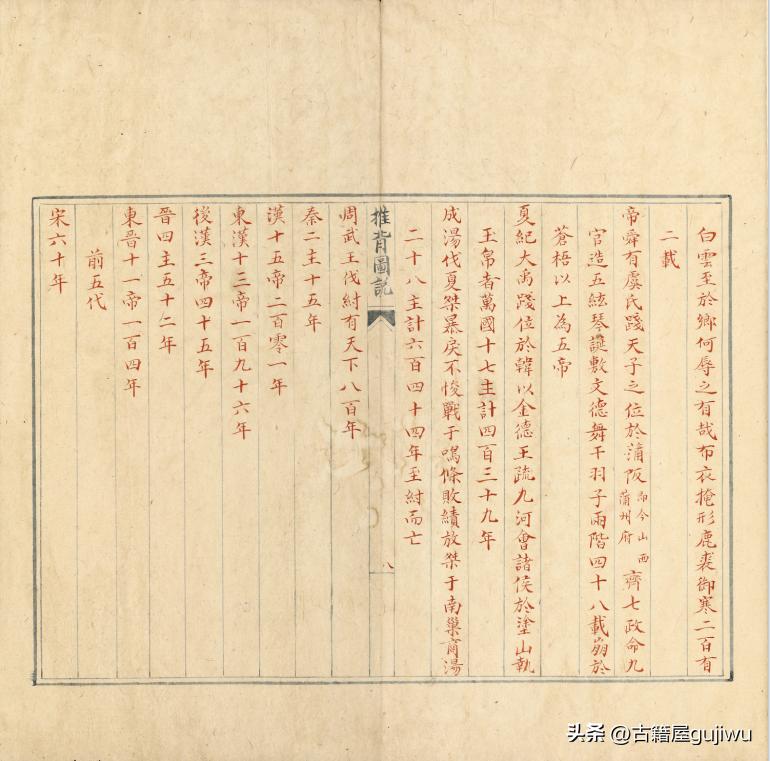 白雲至於鄉何辱之有哉布衣掩形鹿裘御寒二百有
二載
帝舜有虞氏踐天子之位於蒲阪即今山西蒲州府齊七政命九
官造五絃琴誕敷文德舞干羽于兩階四十八載崩於
蒼梧以上為五帝
夏紀大禹踐位於韓以金德王疏九河會諸侯於塗山執
玉帛者萬國十七主計四百三十九年
成湯伐夏桀暴戾不悛戰于鳴條敗績放桀于南巢商湯
二十八主計六百四十四年至紂而亡
推背圖說
八
周武王伐紂有天下八百年
秦二主十五年
漢十五帝二百零一年
東漢十三帝一百九十六年
後漢三帝四十五年
晉四主五十二年
東晉十一帝一百四年
前五代
宋六十年
头条 @古籍屋gujiwu